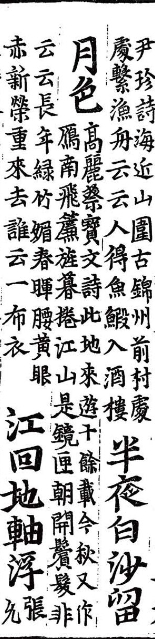 尹珍詩海近山圍古錦州前村處
處繫漁舟云云人得魚鰕入酒樓
半夜白沙留
月色
高麗蔡寳文詩此地來遊十餘載今秋又作
鴈南飛簾旌暮捲江山是鏡匣朝開鬢髮非
云云長年綠竹媚春暉腰黄眼
赤新榮重來去誰云一布衣
江回地軸浮
張
允